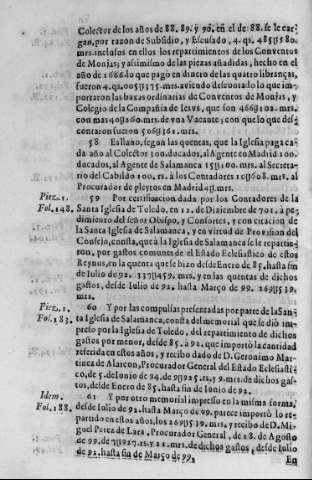 Colector de los años de 88. 89. y 90. en el de 88. se le car-
gan, por razon de Subsidio, y Escusado, 4. qs. 485U580.
mrs. inclusos en ellos los repartimientos de los Conventos
de Monjas; y assimismo de las piezas añadidas, hecho en el
año de 1666. lo que pagò en dinero de las quatro libranças,
fueron 4. qs. 005U375. mrs. aviendo descontado lo que im-
portaron las baxas ordinarias de Conventos de Monjas, y
Colegio de la Compañia de Iesvs, que son 466U102. mrs.
con mas 40U260. mrs. de vna Vacante; con que lo que des-
contaron fueron 506U362. mrs.
58 Eallano, segun las quentas, que la Iglesia paga ca-
da año al Colector 300. ducados, al Agente en Madrid 100.
ducados, al Agente de Salamanca 15U100. mrs. al Secreta-
rio del Cabildo 100. rs. à los Contadores 10U608. mrs. al
Procurador de pleytos en Madrid 4U. mrs.
Piez. 1. 59 Por certificacion dada por los Contadores de la
Fol. 148. Santa Iglesia de Toledo, en 12. de Diziembre de 701. à pe-
dimiento del señor Obispo, y Consortes, y con citacion de
la Santa Iglesia de Salamanca, y en virtud de Provision del
Consejo, consta, que à la Iglesia de Salamanca se le repartie-
ron, por gastos comunes de el Estado Eclesiastico de estos
Reynos, en la quenta que se hizo desde Enero de 85. hasta fin
de Iulio de 92. 337U459. mrs. y en las quentas de dichos
gastos, desde Iulio de 92. hasta Março de 99. 269U519.
mrs.
Piez. 2. 60 Y por las compulsas presentadas por parte de la San-
Fol. 183. ta Iglesia de Salamanca, consta del memorial que se diò im-
presso por la Iglesia de Toledo, del repartimiento de dichos
gastos por menor, desde 85. à 92. que importò la cantidad
referida en estos años, y recibo dado de D. Geronimo Mar-
tinez de Alarcon, Procurador General del Estado Eclesiasti-
co, de 5. de Iunio de 94. de 9U925. rs. y 9. mrs. de dichos gas-
tos, desde Enero de 85. hasta fin de Iunio de 92.
Idem. 61 Y por otro memorial impresso en la misma forma,
Fol. 188. desde Iulio de 92. hasta Março de 99. parece importò lo re-
partido en estos años, los 269U519. mrs. y recibo de D. Mi-
guel Perez de Lara, Procurador General, de 18. de Agosto
de 99. de 7U927. rs. y 1. mrs. de dichos gastos, desde Iulio
de 92. hasta fin de Março de 99.
En